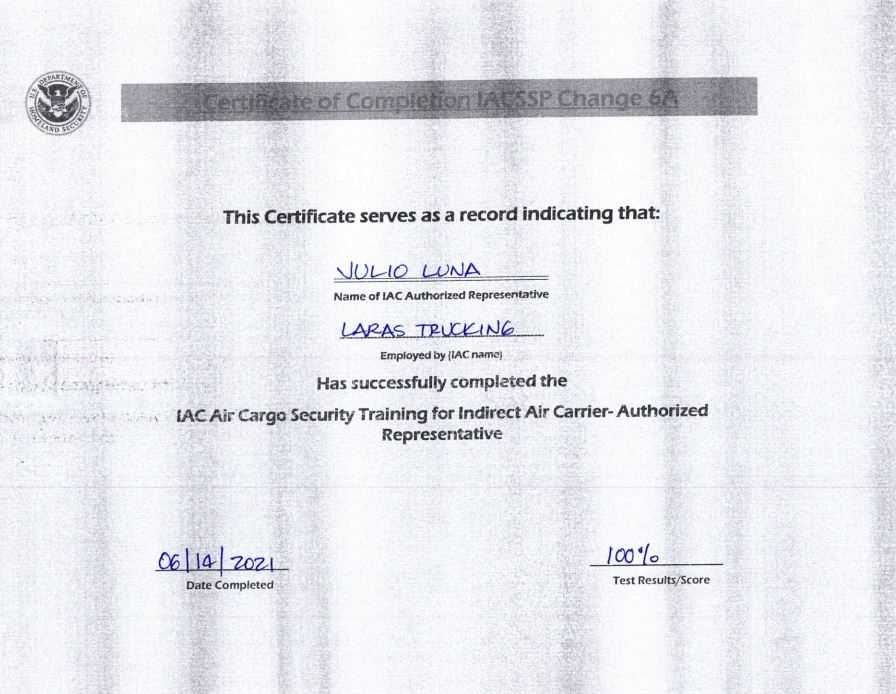 U.S. DEPARTMENT OF HOMELAND SECURITY
Certificate of Completion IACSSP Change 6A
This Certificate serves as a record indicating that:
JULIO LUNA
Name of IAC Authorized Representative
LARAS TRUCKING
Employed by (IAC name)
Has successfully completed the
IAC Air Cargo Security Training for Indirect Air Carrier- Authorized
Representative
06|14|2021
Date Completed
100%
Test Results/Score